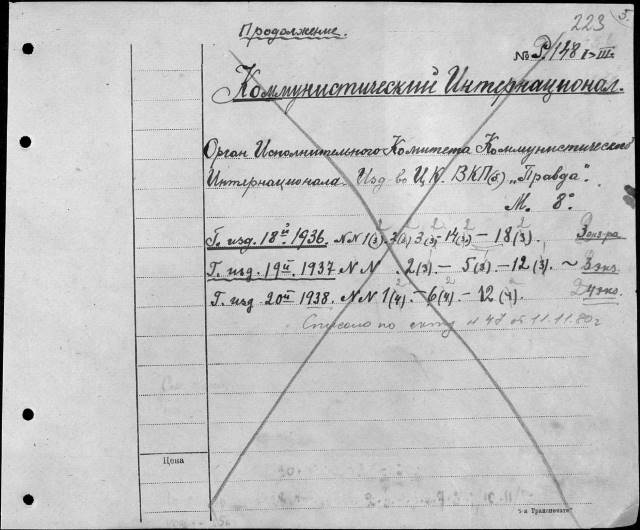 223
5.
Продолжение.
№ Р/148 I-III.
Коммунистический Интернационал.
Орган Исполнительного Комитета Коммунистического
Интернационала. Изд-во ЦК ВКП(б) „Правда".
М. 8°.
Г. изд. 18й 1936. NN 1(3). 2(2) 3(3)-14(3) - 18(3).
Г. изд. 19й 1937 NN 2(3) - 5(3) - 12(3). ~ 3 экз.
Г. изд 20й 1938. NN 1(4). - 6(4). - 12(4).
Списано по акту № 47 от 11.11.80г
Цена